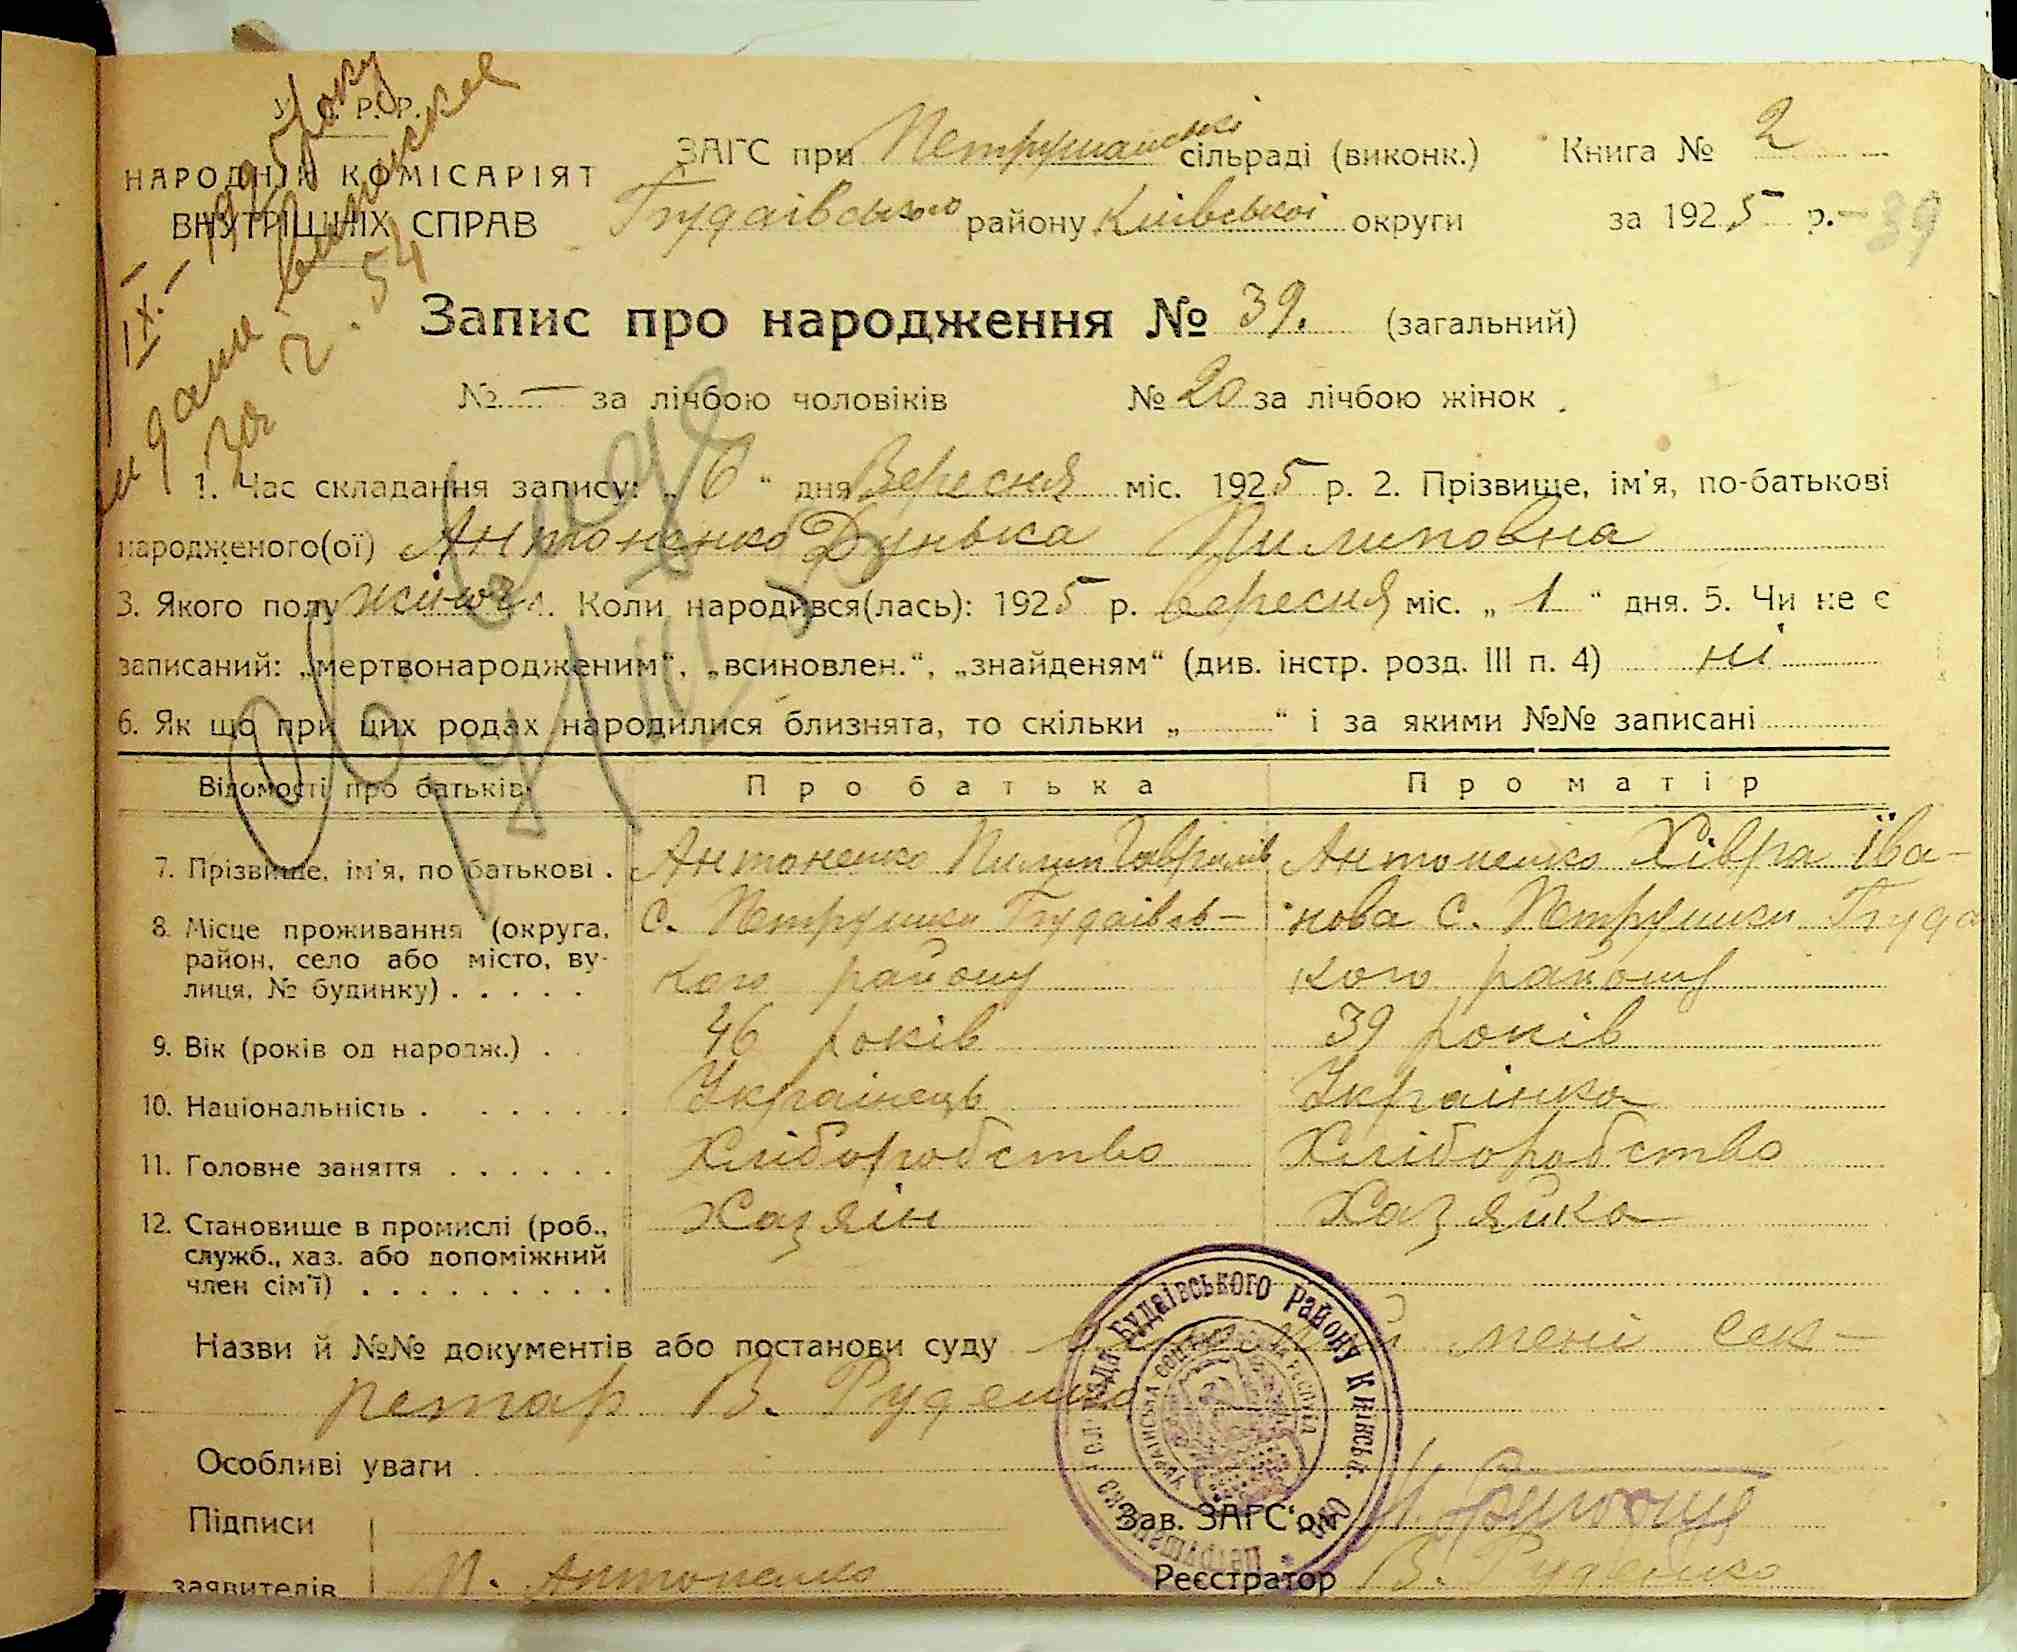 У. С. Р. Р.
НАРОДНІЙ КОМІСАРІЯТ
ВНУТРІШНІХ СПРАВ
ЗАГС при Петрушанській сільраді (виконк.) Книга № 2
Будаівського району Київської округи за 1925 р. - 39
IX. - 195 року
видани виписка
за ч. 54
Запис про народження № 39. (загальний)
№ — за лічбою чоловіків № 20 за лічбою жінок
1. Час складання запису: „6“ дня Вересня міс. 1925 р. 2. Прізвище, ім'я, по-батькові
народженого(ої) Антоненко Дунька Пилиповна
3. Якого полу жіноч 4. Коли народився(лась): 1925 р. вересня міс. „1“ дня. 5. Чи не є
записаний: „мертвонародженим“, „всиновлен.“, „знайденям“ (див. інстр. розд. III п. 4) ні
6. Як що при цих родах народилися близнята, то скільки „ “ і за якими №№ записані
Відомості про батьків Про батька Про матір
7. Прізвище, ім'я, по батькові . Антоненко Пилип Гаврилів Антоненко Хівра Іва-
8. Місце проживання (округа, С. Петрушки Будаівсь- нова С. Петрушки Буда
район, село або місто, ву- кого району кого району
лиця, № будинку) . . . . .
9. Вік (років од народж.) . . 46 років 39 років
10. Національність . . . . . . Украінець Украінка
11. Головне заняття . . . . . . Хліборобство Хліборобство
12. Становище в промислі (роб., Хазяін Хазяйка
служб., хаз. або допоміжний
член сім'ї) . . . . . . . . .
Назви й №№ документів або постанови суду мені сек-
ретар В. Руденко
Особливі уваги
Підписи Зав. ЗАГС'ом
заявителів П. Антоненко Реєстратор В. Руденко
Будаівського Району Київськ. Окр.